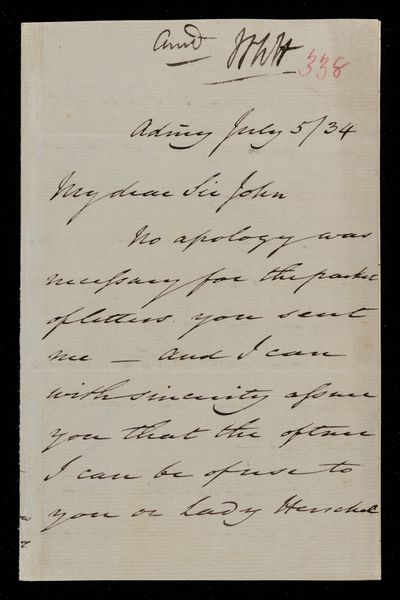 ansd
338
Admy July 5/34
My dear Sir John
No apology was
necessary for the packet
of letters you sent
me — and I can
with sincerity assure
you that the oftener
I can be of use to
you or Lady Herschel